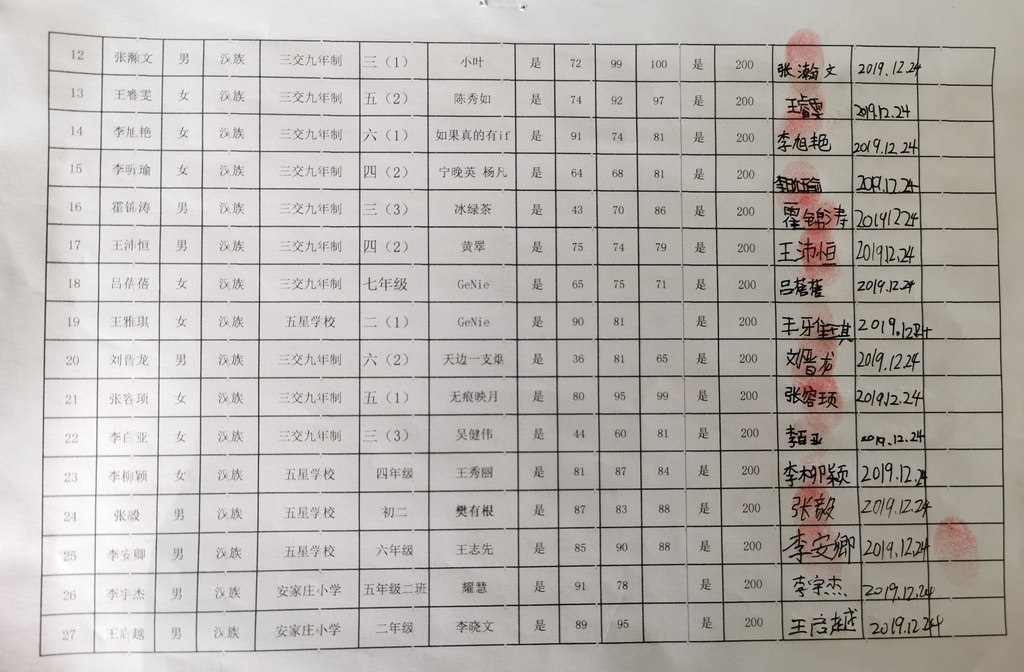 12 张瀚文 男 汉族 三交九年制 三（1） 小叶 是 72 99 100 是 200 张瀚文 2019.12.24
13 王睿雯 女 汉族 三交九年制 五（2） 陈秀如 是 74 92 97 是 200 王睿雯 2019.12.24
14 李旭艳 女 汉族 三交九年制 六（1） 如果真的有if 是 91 74 81 是 200 李旭艳 2019.12.24
15 李昕瑜 女 汉族 三交九年制 四（2） 宁晚英 杨凡 是 64 68 81 是 200 李昕瑜 2019.12.24
16 霍锦涛 男 汉族 三交九年制 三（3） 冰绿茶 是 43 70 86 是 200 霍锦涛 20191224
17 王沛恒 男 汉族 三交九年制 四（2） 黄翠 是 75 74 79 是 200 王沛恒 2019.12.24
18 吕蓓蓓 女 汉族 三交九年制 七年级 GeNie 是 65 75 71 是 200 吕蓓蓓 2019.12.24
19 王雅琪 女 汉族 五星学校 二（1） GeNie 是 90 81 是 200 王雅琪 2019.12.24
20 刘晋龙 男 汉族 三交九年制 六（2） 天边一支烟 是 36 81 65 是 200 刘晋龙 2019.12.24
21 张容顼 女 汉族 三交九年制 五（1） 无痕映月 是 80 95 99 是 200 张容顼 2019.12.24
22 李百亚 女 汉族 三交九年制 三（3） 吴健伟 是 44 60 81 是 200 李百亚 2019.12.24
23 李柳颖 女 汉族 五星学校 四年级 王秀丽 是 81 87 84 是 200 李柳颖 2019.12.24
24 张毅 男 汉族 五星学校 初二 樊有根 是 87 83 88 是 200 张毅 2019.12.24
25 李安卿 男 汉族 五星学校 六年级 王志先 是 85 90 88 是 200 李安卿 2019.12.24
26 李宇杰 男 汉族 安家庄小学 五年级二班 耀慧 是 91 78 是 200 李宇杰 2019.12.24
27 王启越 男 汉族 安家庄小学 二年级 李晓文 是 89 95 是 200 王启越 2019.12.24